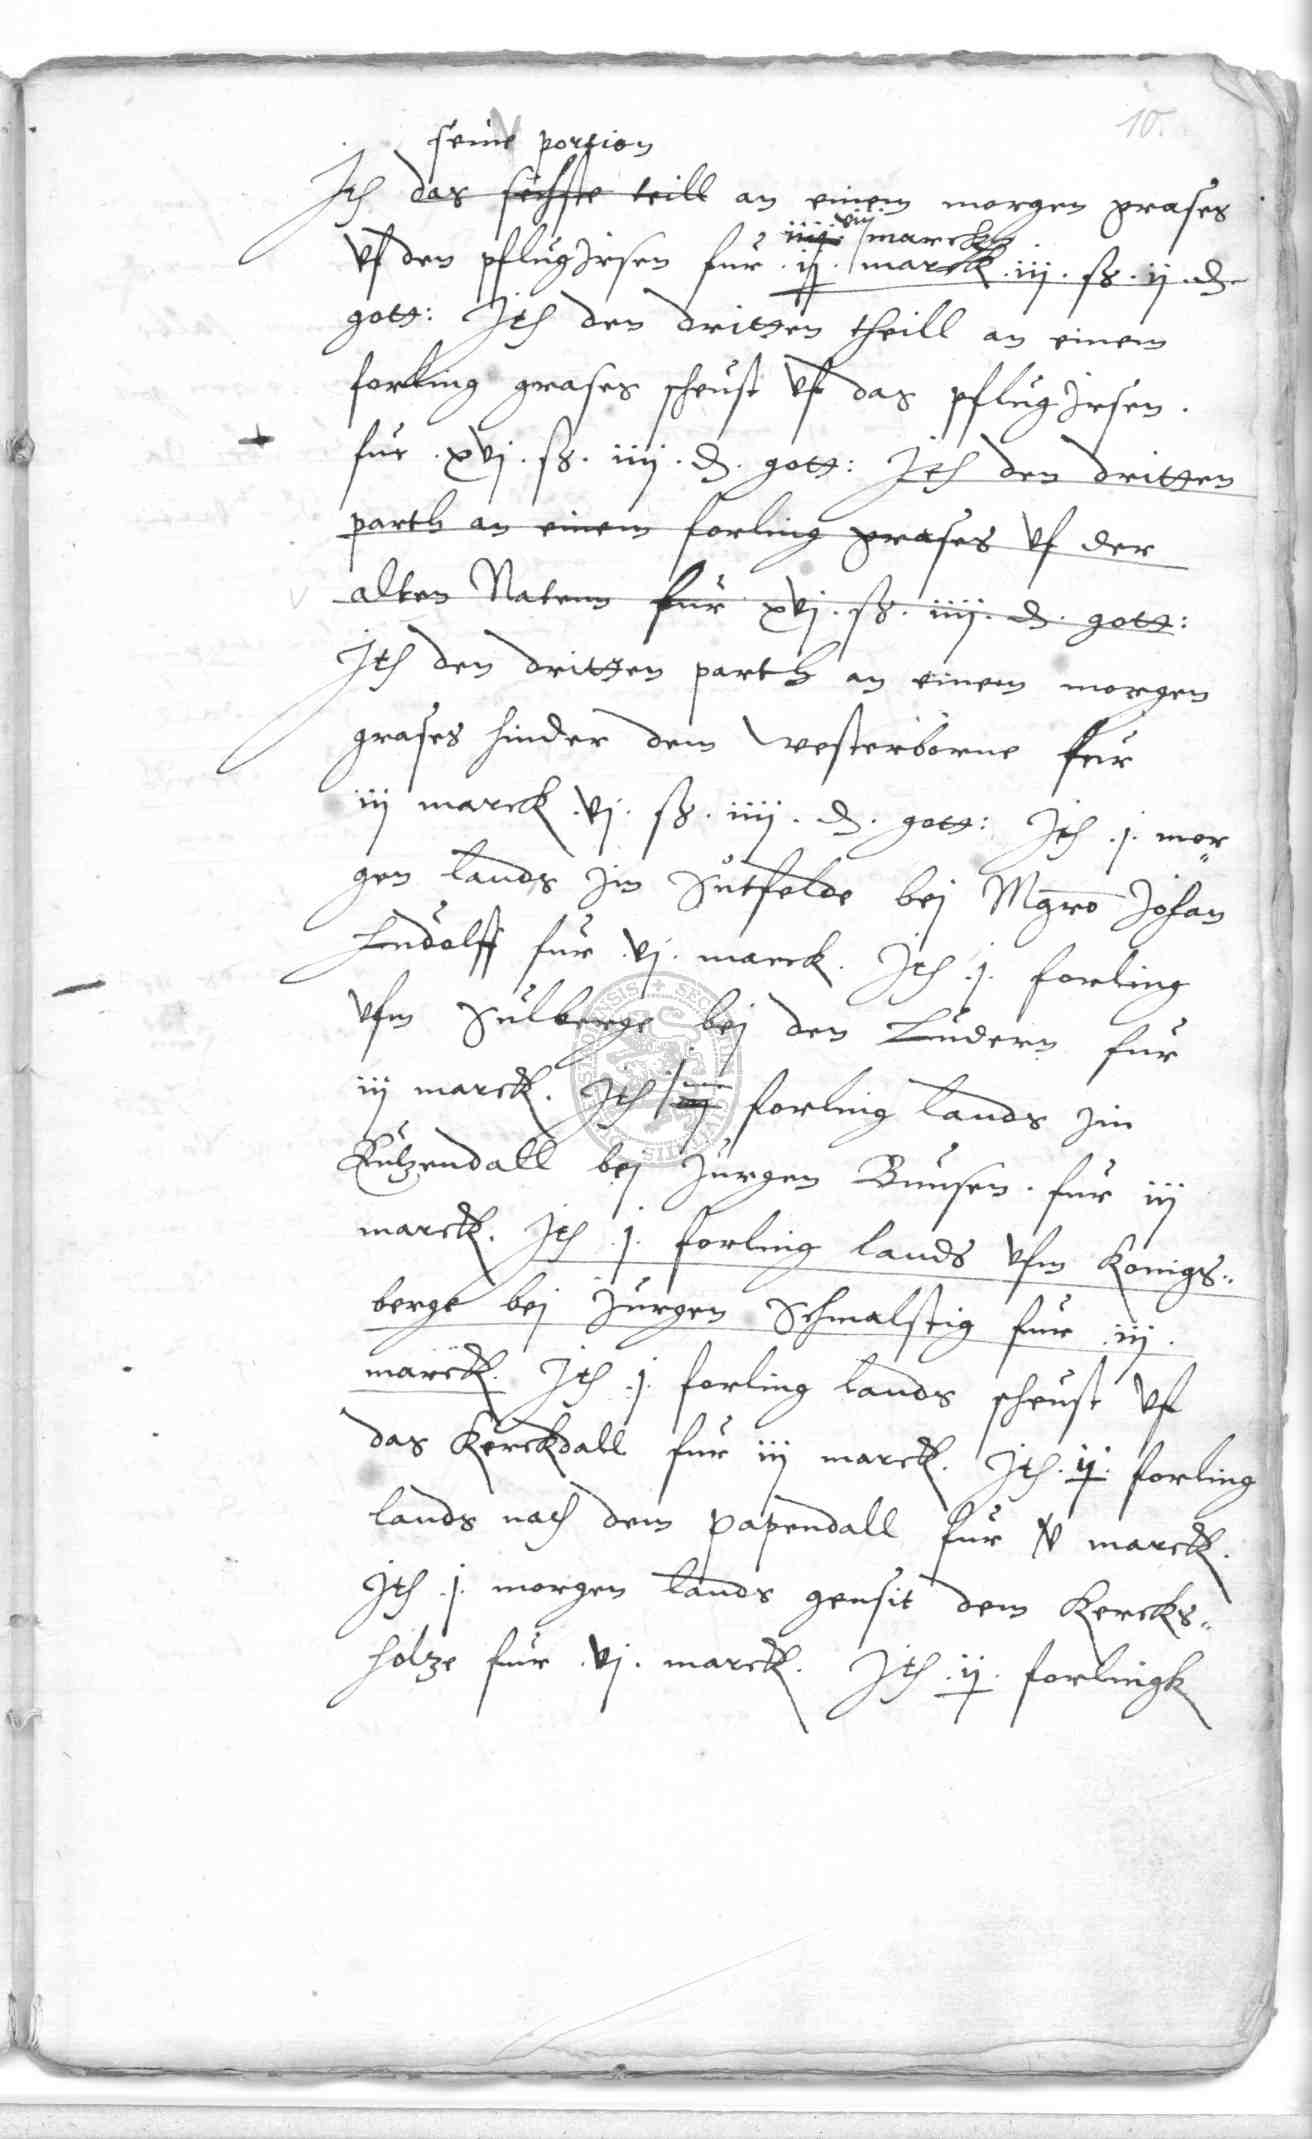 10.
seine portion
Jth das sechste teill an einem morgen grases
viij
iiij marck
vf den pflugJrsen fur .ij. marck .iij. ß. ij. d.
gott: Jth den dritten theill an einem
forling grases scheust vf das pflugJrsen.
fur .xvj. ß. iiij. d. gott: Jth den dritten
parth an einem forling grases vf der
alten Natenn fur xvj. ß. iiij. d. gott:
Jth den dritten parth an einem morgen
grases hinder dem westerborne fur
iij marck .vj. ß. iiij. d. gott: Jth .j. mor„
gen lands jm Sutfelde bej Mgro Johan
Ludolff fur .vj. marck. Jth .j. forling
vfm Sulberge bej den Ludern fur
iij marck. Jth forling lands jm
Kutzendall bej Jurgen Bunsen. fur iij
marck. Jth .j. forling lands vfm Konigs„
berge bej Jurgen Schmalstig fur .iij.
marck. Jth .j. forling lands scheust vf
das Kerckdall fur iij marck. Jth .ij. forling
lands nach dem papendall fur v marck.
Jth .j. morgen lands gensit dem Kercks„
holze fur .vj. marck. Jth .ij. forlingk